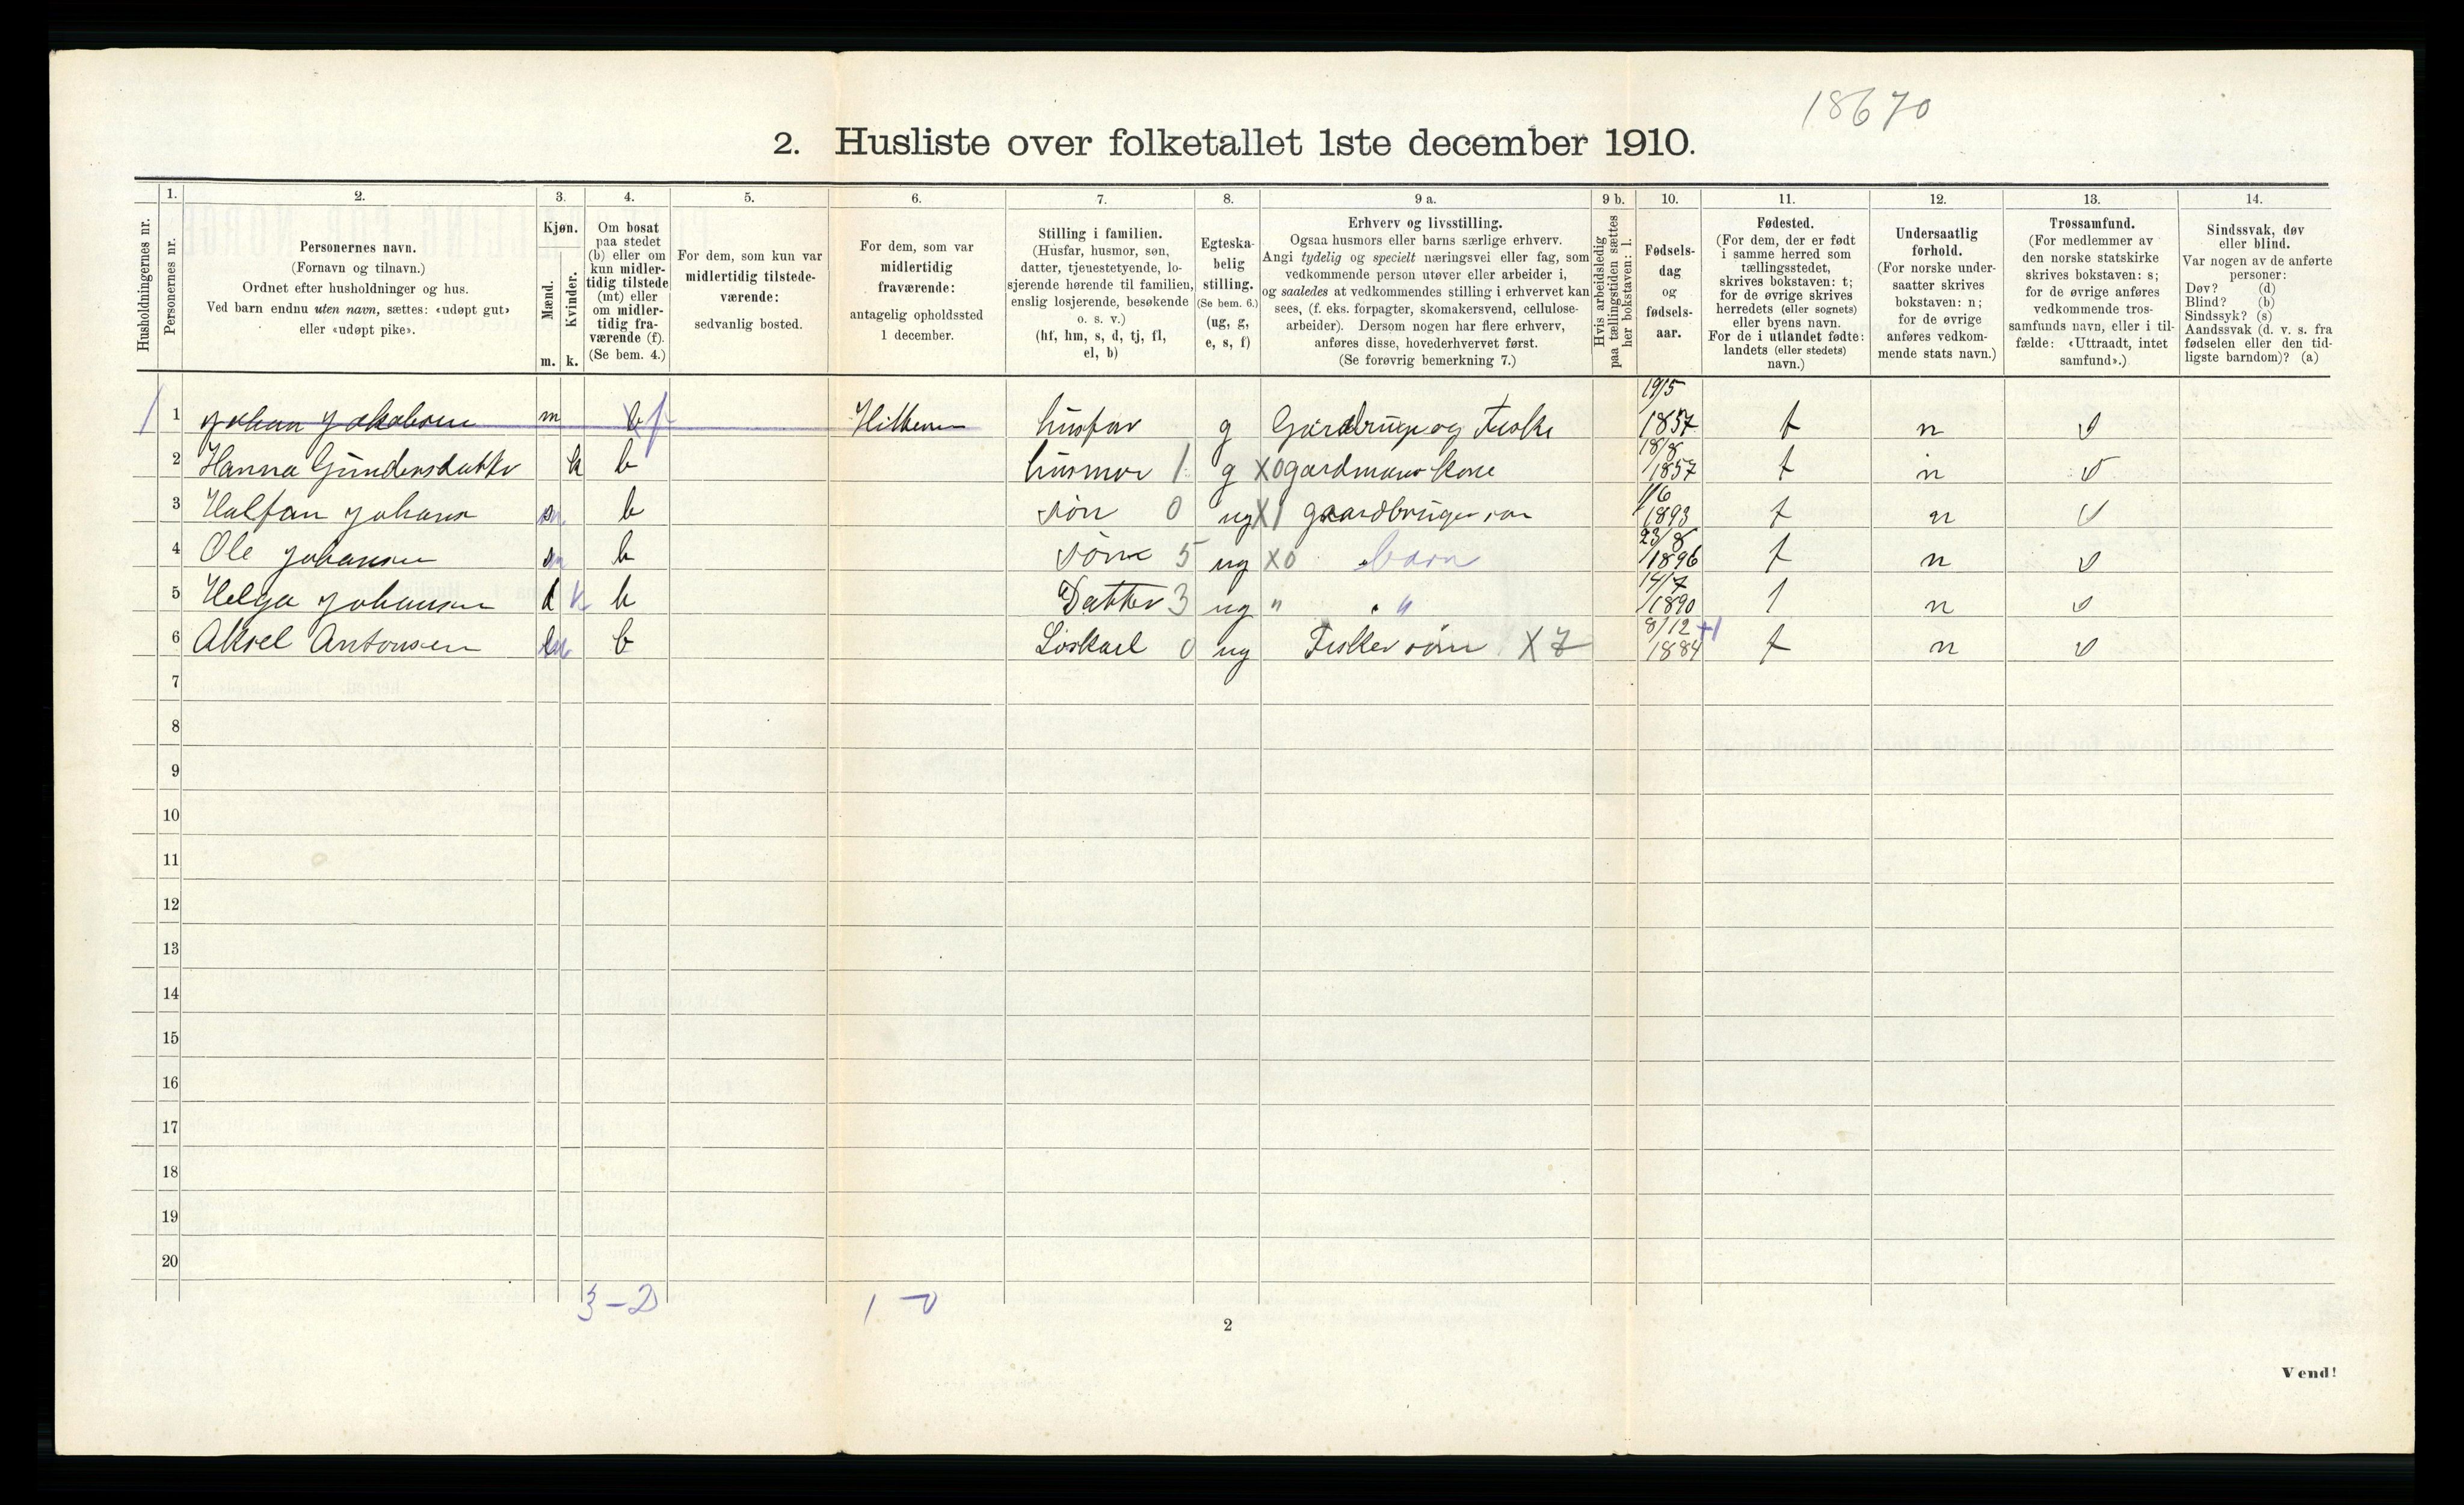 18670
2. Husliste over folketallet 1ste december 1910.
Husholdningernes nr.
1.
Personernes nr.
2.
Personernes navn.
(Fornavn og tilnavn.)
Ordnet efter husholdninger og hus.
Ved barn endnu uten navn, sættes: «udøpt gut»
eller «udøpt pike».
3.
Kjøn.
Mænd.
Kvinder.
m. k.
4.
Om bosat
paa stedet
(b) eller om
kun midler-
tidig tilstede
(mt) eller
om midler-
tidig fra-
værende (f).
(Se bem. 4.)
5.
For dem, som kun var
midlertidig tilstede-
værende:
sedvanlig bosted.
6.
For dem, som var
midlertidig
fraværende:
antagelig opholdssted
1 december.
7.
Stilling i familien.
(Husfar, husmor, søn,
datter, tjenestetyende, lo-
sjerende hørende til familien,
enslig losjerende, besøkende
o. s. v.)
(hf, hm, s, d, tj, fl,
el, b)
8.
Egteska-
belig
stilling.
(Se bem. 6.)
(ug, g,
e, s, f)
9 a.
Erhverv og livsstilling.
Ogsaa husmors eller barns særlige erhverv.
Angi tydelig og specielt næringsvei eller fag, som
vedkommende person utøver eller arbeider i,
og saaledes at vedkommendes stilling i erhvervet kan
sees, (f. eks. forpagter, skomakersvend, cellulose-
arbeider). Dersom nogen har flere erhverv,
anføres disse, hovederhvervet først.
(Se forøvrig bemerkning 7.)
9 b.
Hvis arbeidsledig
paa tællingstiden sættes
her bokstaven: l.
10.
Fødsels-
dag
og
fødsels-
aar.
11.
Fødested.
(For dem, der er født
i samme herred som
tællingsstedet,
skrives bokstaven: t;
for de øvrige skrives
herredets (eller sognets)
eller byens navn.
For de i utlandet fødte:
landets (eller stedets)
navn.)
12.
Undersaatlig
forhold.
(For norske under-
saatter skrives
bokstaven: n;
for de øvrige
anføres vedkom-
mende stats navn.)
13.
Trossamfund.
(For medlemmer av
den norske statskirke
skrives bokstaven: s;
for de øvrige anføres
vedkommende tros-
samfunds navn, eller i til-
fælde: «Uttraadt, intet
samfund».)
14.
Sindssvak, døv
eller blind.
Var nogen av de anførte
personer:
Døv? (d)
Blind? (b)
Sindssyk? (s)
Aandssvak (d. v. s. fra
fødselen eller den tid-
ligste barndom)? (a)
1 1 Johan Jakobsen m b f Hitteren husfar g Gardbruge og Fiske 19/5 1857 t n s
2 Hanna Gundersdatter k b husmor 1 g X0 gardmans kone 18/8 1857 t n s
3 Halfan Johans m b søn 0 ug X1 gaardbruger søn 1/6 1893 t n s
4 Ole Johansen m b søn 5 ug X0 barn 23/8 1896 t n s
5 Helga Johansen k b Datter 3 ug " " 14/7 1890 t n s
6 Aksel Antonsen m b Løskarl 0 ug Fisker søn X7 8/12 1884 +1 t n s
7
8
9
10
11
12
13
14
15
16
17
18
19
20
3-2 1-0
2
Vend!